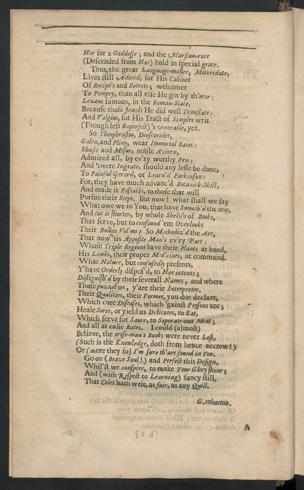 Her for a Goddesse; and the Marsian-race
(Descended from Her) hold in special grace.
Thus, the great Language-master, Mithridate,
Lives still Adored, for His Cabinet
Of Receipts and Secrets; welcomer
To Pompey, than all else He got by th'war:
Lenæus famous, in the Roman-State,
Because those Jewels He did well Translate:
And Valgius, for His Tract of Simples writ
(Though left Unperfect)'s venerable, yet.
So Theophrastus, Dioscorides,
Galen, and Pliny, wear Immortal Baies:
Rhasis and Mesue, noble Avicen,
Admired all, by ev'ry worthy Pen;
And 'twere Ingrate, should any lesse be done,
To Painful Gerard, or Learn'd Parkinson:
For, they have much advanc'd Botanick-Skill,
And made it Possible, to those that will
Pursue their Steps. But now! what shall we say
What owe we to You, that have Smooth'd the way,
And cut it shorter, by whole Shelv's of Books,
That serve, but to confound 'em Overlooks
Their Bulkie Vol'ms? So Methodiz'd the Art,
That now 'tis Apposite Man's ev'ry Part:
Whose Triple Regions have their Plants at hand,
His Limbs, their proper Med'cines, at command.
What Nature, but confusedly presents,
Y'have Orderly dispos'd, to Her intents;
Distinguish'd by their severall Names, and where
Those puzzel us, y'are their Interpreter.
Their Qualities, their Formes, you doe declare,
Which cure Diseases, which 'gainst Poysons are;
Heale Sores, or yield us Delicates, to Eat,
Which serve for Sauce, to Saporate our Meat;
And all at easie Rates. I could (almost)
Believe, the Wise-man's Book were never Lost,
(Such is the Knowledge, doth from hence accrew!)
Or (were they so) I'm sure th'are found in You.
Go on (Brave Soul!) and Perfect this Design,
Whil'st we conspire, to make Your Glory shine;
And (with Respect to Learning) fancy still,
That Coles hath writ, as fair, as any Quill.
G. Wharton.
A